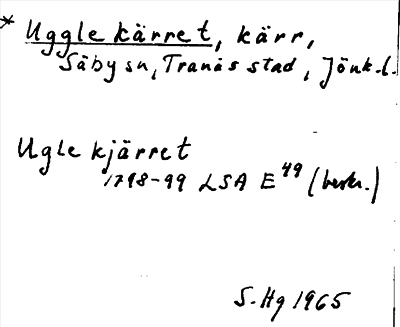 * Uggle kärret, kärr,
Säby sn, Tranås stad, Jönk.l.
Ugle kjärret
1798-99 LSA E 49 (beskr.)
S. Hg 1965